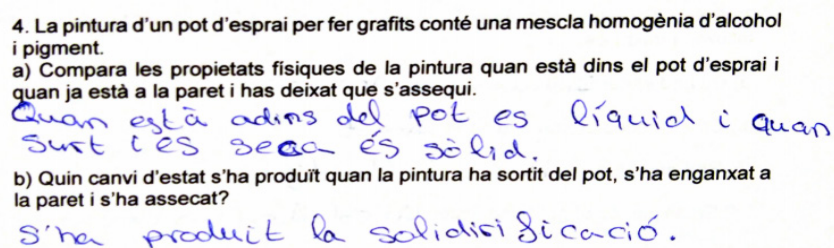 4. La pintura d'un pot d'esprai per fer grafits conté una mescla homogènia d'alcohol
i pigment.
a) Compara les propietats físiques de la pintura quan està dins el pot d'esprai i
quan ja està a la paret i has deixat que s'assequi.
Quan està adins del pot es líquid i quan
surt i es seca és sòlid.
b) Quin canvi d'estat s'ha produït quan la pintura ha sortit del pot, s'ha enganxat a
la paret i s'ha assecat?
S'ha produit la solidisificació.